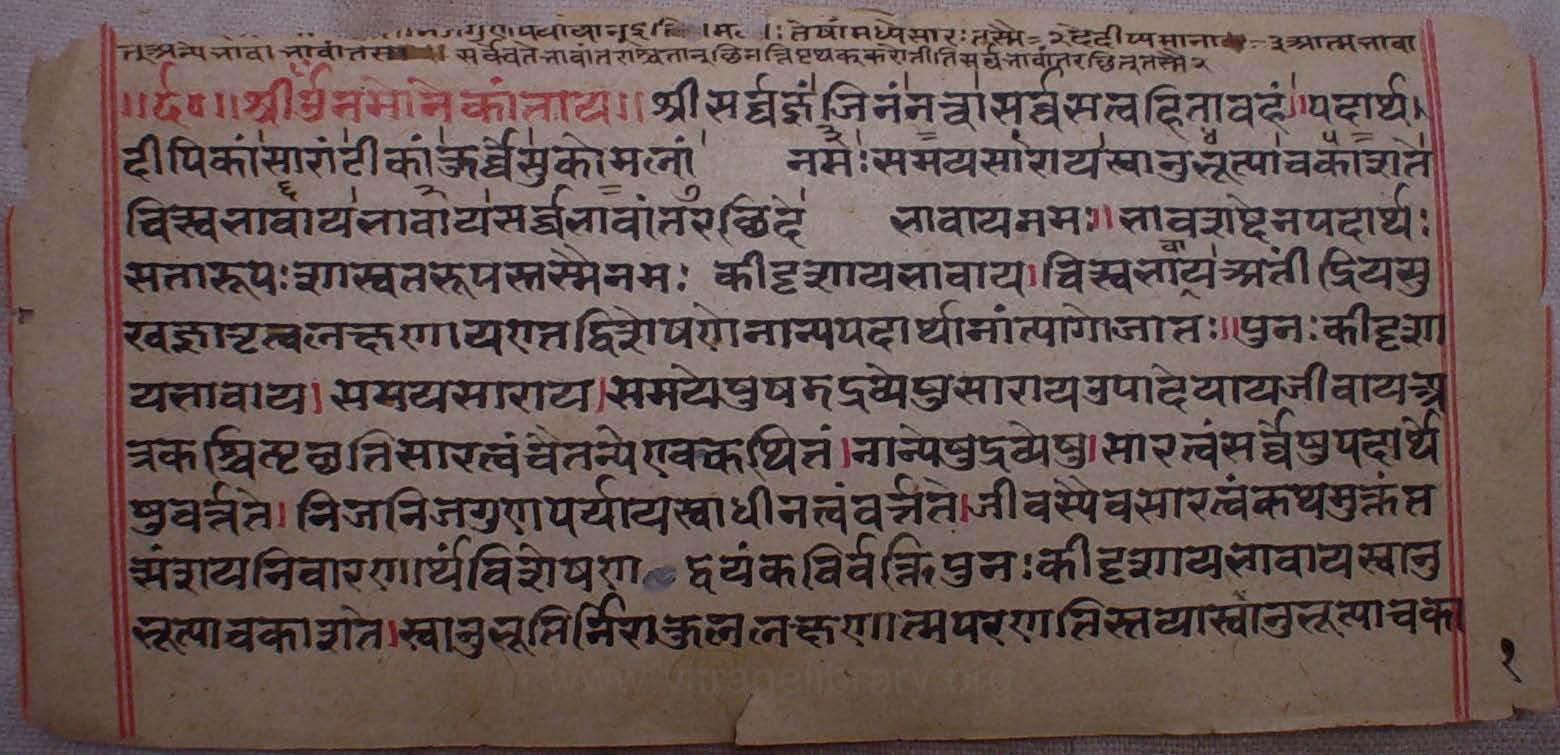 तेषां मध्ये सारः तस्मै २ देदीप्यमाना ३ आत्मभावा
अन्यभावा भावांतर सर्व्व भावांतराश्च तान् छिनत्ति पृथक् करोतीति सर्व्वभावांतरछित् तस्मै २
॥ श्रीं नमोनेकांताय॥ श्रीसर्व्वज्ञं जिनं नत्वा सर्व्वसत्वहितावहं॥ पदार्थ
दीपिकां सारां टीकां कुर्व्वे सुकोमलां नमः समयसाराय स्वानुभूत्या चकाशते
चित्स्वभावाय भावाय सर्व्वभावांतरच्छिदे भावाय नमः॥ भावशब्देन पदार्थः
सत्तारूपः शास्वतरूपस्तस्मै नमः कीदृशाय भावाय। चित्स्वभावाय अतींद्रियसु
खज्ञातृत्वलक्षणाय एतद्विशेषणेनान्यपदार्थानां त्यागो जातः॥ पुनः कीदृशा
य भावाय। समयसाराय। समयेषु षट्द्रव्येषु साराय उपादेयाय जीवाय अ
त्र कश्चित्पृछति सारत्वं चैतन्ये एव कथितं। नान्येषु द्रव्येषु। सारत्वं सर्व्वेषु पदार्थे
षु वर्त्तते। निजनिजगुणपर्यायस्वाधीनत्वं वर्त्तते। जीवस्यैव सारत्वं कथमुक्तं त
त्संशयनिवारणार्थं विशेषण द्वयं कविर्वक्ति पुनः कीदृशाय भावाय स्वानु
भूत्या चकाशते। स्वानुभूतिर्निराकुललक्षणात्मपरणतिस्तया स्वानुभूत्या चका
१